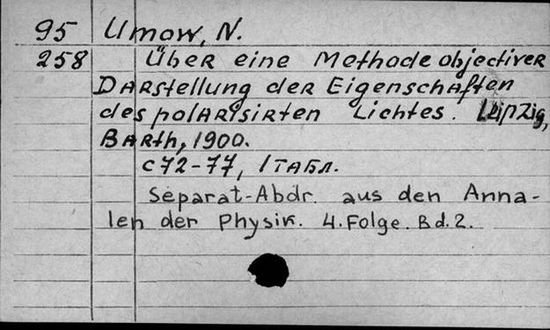 95 Umow, N.
258 Über eine Methode objectiver
Darstellung der Eigenschaften
des polarisirten Lichtes. Leipzig,
Barth, 1900.
с 72-77, 1 табл.
Separat-Abdr. aus den Anna-
len der Physik. 4. Folge. Bd. 2.